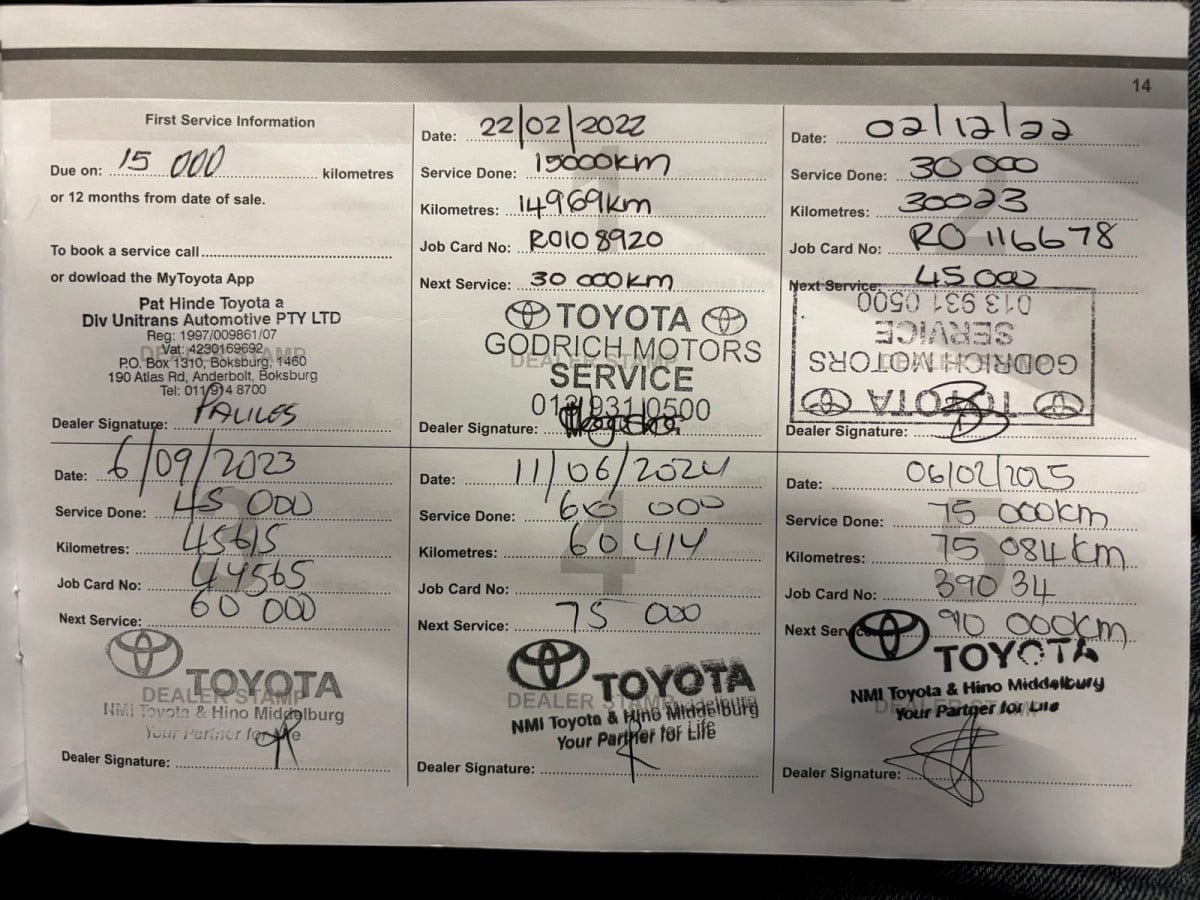 14
First Service Information
Due on: 15 000 kilometres
or 12 months from date of sale.
To book a service call
or dowload the MyToyota App
Pat Hinde Toyota a
Div Unitrans Automotive PTY LTD
Reg: 1997/009861/07
Vat: 4230169692
P.O. Box 1310, Boksburg, 1460
190 Atlas Rd, Anderbolt, Boksburg
Tel: 011 914 8700
Dealer Signature:
Date: 22/02/2022
Service Done: 15000km
Kilometres: 14969km
Job Card No: R0108920
Next Service: 30 000km
TOYOTA
GODRICH MOTORS
DEALER STAMP
SERVICE
013 931 0500
Dealer Signature:
2
Date: 02/12/22
Service Done: 30 000
Kilometres: 30023
Job Card No: RO 116678
Next Service: 45 000
013 931 0500
SERVICE
GODRICH MOTORS
TOYOTA
Dealer Signature:
Date: 6/09/2023
Service Done: 45 000
Kilometres: 45615
Job Card No: 44565
Next Service: 60 000
TOYOTA
DEALER STAMP
NMI Toyota & Hino Middelburg
Your Partner for Life
Dealer Signature:
4
Date: 11/06/2024
Service Done: 60 000
Kilometres: 60414
Job Card No:
Next Service: 75 000
TOYOTA
DEALER STAMP
NMI Toyota & Hino Middelburg
Your Partner for Life
Dealer Signature:
5
Date: 06/02/2025
Service Done: 75 000km
Kilometres: 75 084km
Job Card No: 390 34
Next Service: 90 000km
TOYOTA
NMI Toyota & Hino Middelburg
Your Partner for Life
Dealer Signature: